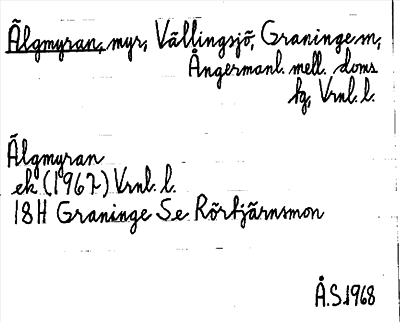 Älgmyran, myr, Vällingsjö, Graninge sn,
Ångermanl. mell. doms
fg, Vrnl. l.
Älgmyran
ek (1967) Vrnl. l.
18H Graninge Se Rörtjärnsmon
Å.S.1968